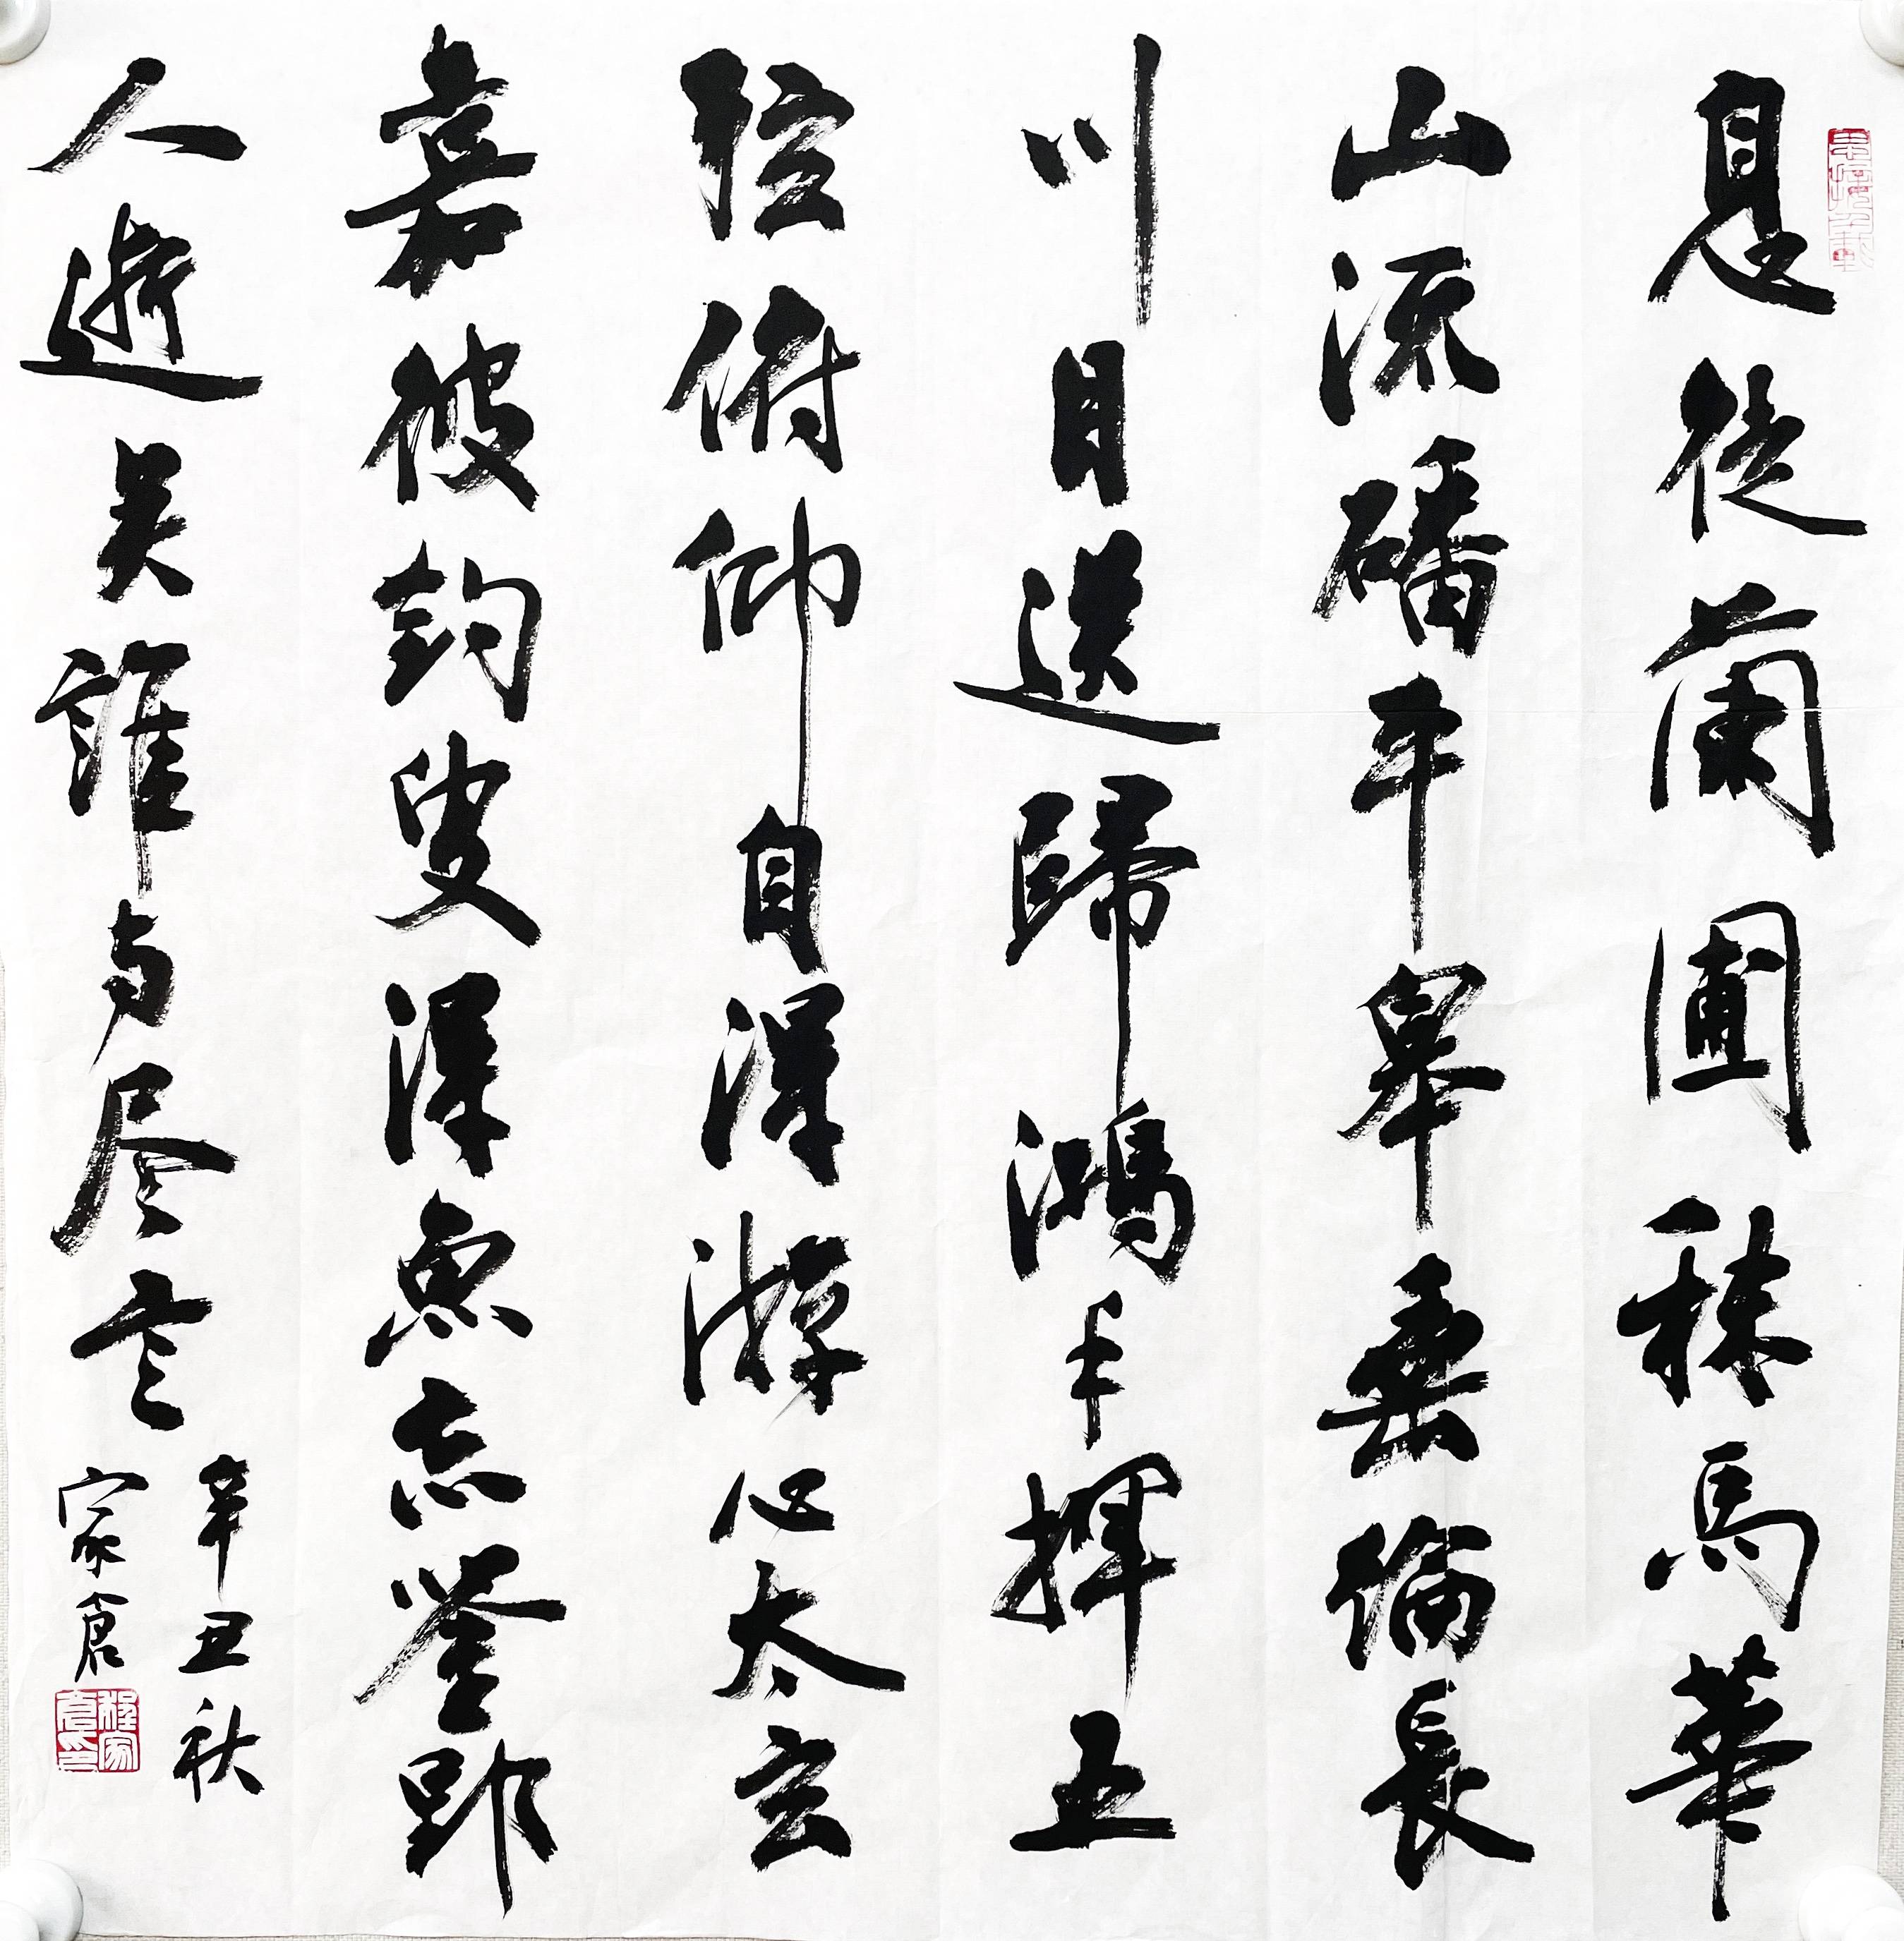 息徒蘭圃秣馬華
山流磻平皋垂綸長
川目送歸鴻手揮五
弦俯仰自得游心太玄
嘉彼釣叟得魚忘筌郢
人逝矣誰与尽言
辛丑秋
家倉